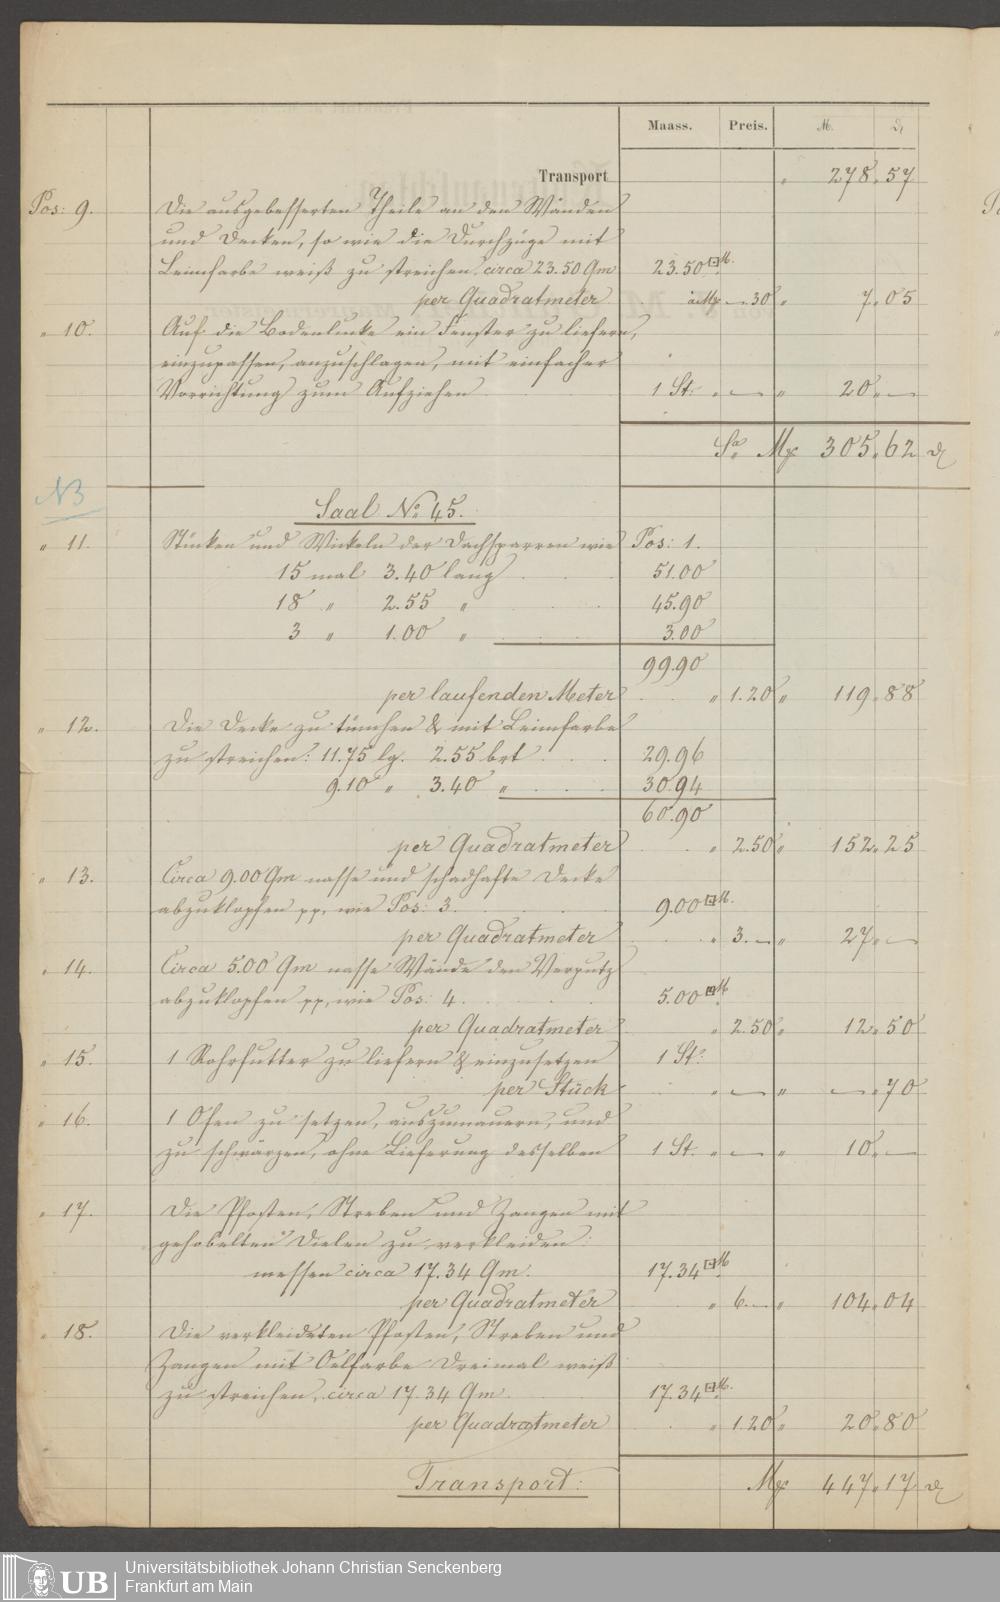 Maass. Preis. M. ₰
Transport " 278. 57
Pos: 9. Die ausgebesserten Theile an den Wänden
und Decken, so wie die Durchzüge mit
Leimfarbe weiß zu streichen circa 23.50 Qm 23.50 □M.
per Quadratmeter à Mk —. 30 " 7. 05
" 10. Auf die Bodenlucke ein Fenster zu liefern,
einzupassen, anzuschlagen, mit einfacher
Vorrichtung zum Aufziehen 1 St. " — " 20. —
Sa. Mk 305. 62 ₰
NB
Saal No. 45.
" 11. Stücken und Wickeln der Dachsparren wie Pos: 1.
15 mal 3.40 lang 51.00
18 " 2.55 " 45.90
3 " 1.00 " 3.00
99.90
per laufenden Meter " 1.20 " 119. 88
" 12. Die Decke zu tünchen & mit Leimfarbe
zu streichen: 11.75 lg. 2.55 brt 29.96
9.10 " 3.40 " 30.94
60.90
per Quadratmeter " 2.50 " 152. 25
" 13. Circa 9.00 Qm nasse und schadhafte Decke
abzuklopfen pp, wie Pos: 3. 9.00 □M.
per Quadratmeter " 3. — " 27. —
" 14. Circa 5.00 Qm nasse Wände den Verputz
abzuklopfen pp, wie Pos: 4. 5.00 □M.
per Quadratmeter " 2.50 " 12. 50
" 15. 1 Rohrfutter zu liefern & einzusetzen 1 St.
per Stück " — " —. 70
" 16. 1 Ofen zu setzen, auszumauern, und
zu schwärzen, ohne Lieferung desselben 1 St. " — " 10. —
" 17. Die Pfosten, Streben und Zangen mit
gehobelten Dielen zu verkleiden:
messen circa 17.34 Qm. 17.34 □M.
per Quadratmeter " 6. — " 104. 04
" 18. Die verkleideten Pfosten, Streben und
Zangen mit Oelfarbe dreimal weiß
zu streichen, circa 17.34 Qm. 17.34 □M.
per Quadratmeter " 1.20 " 20. 80
Transport: Mk 447. 17 ₰
UB
Universitätsbibliothek Johann Christian Senckenberg
Frankfurt am Main